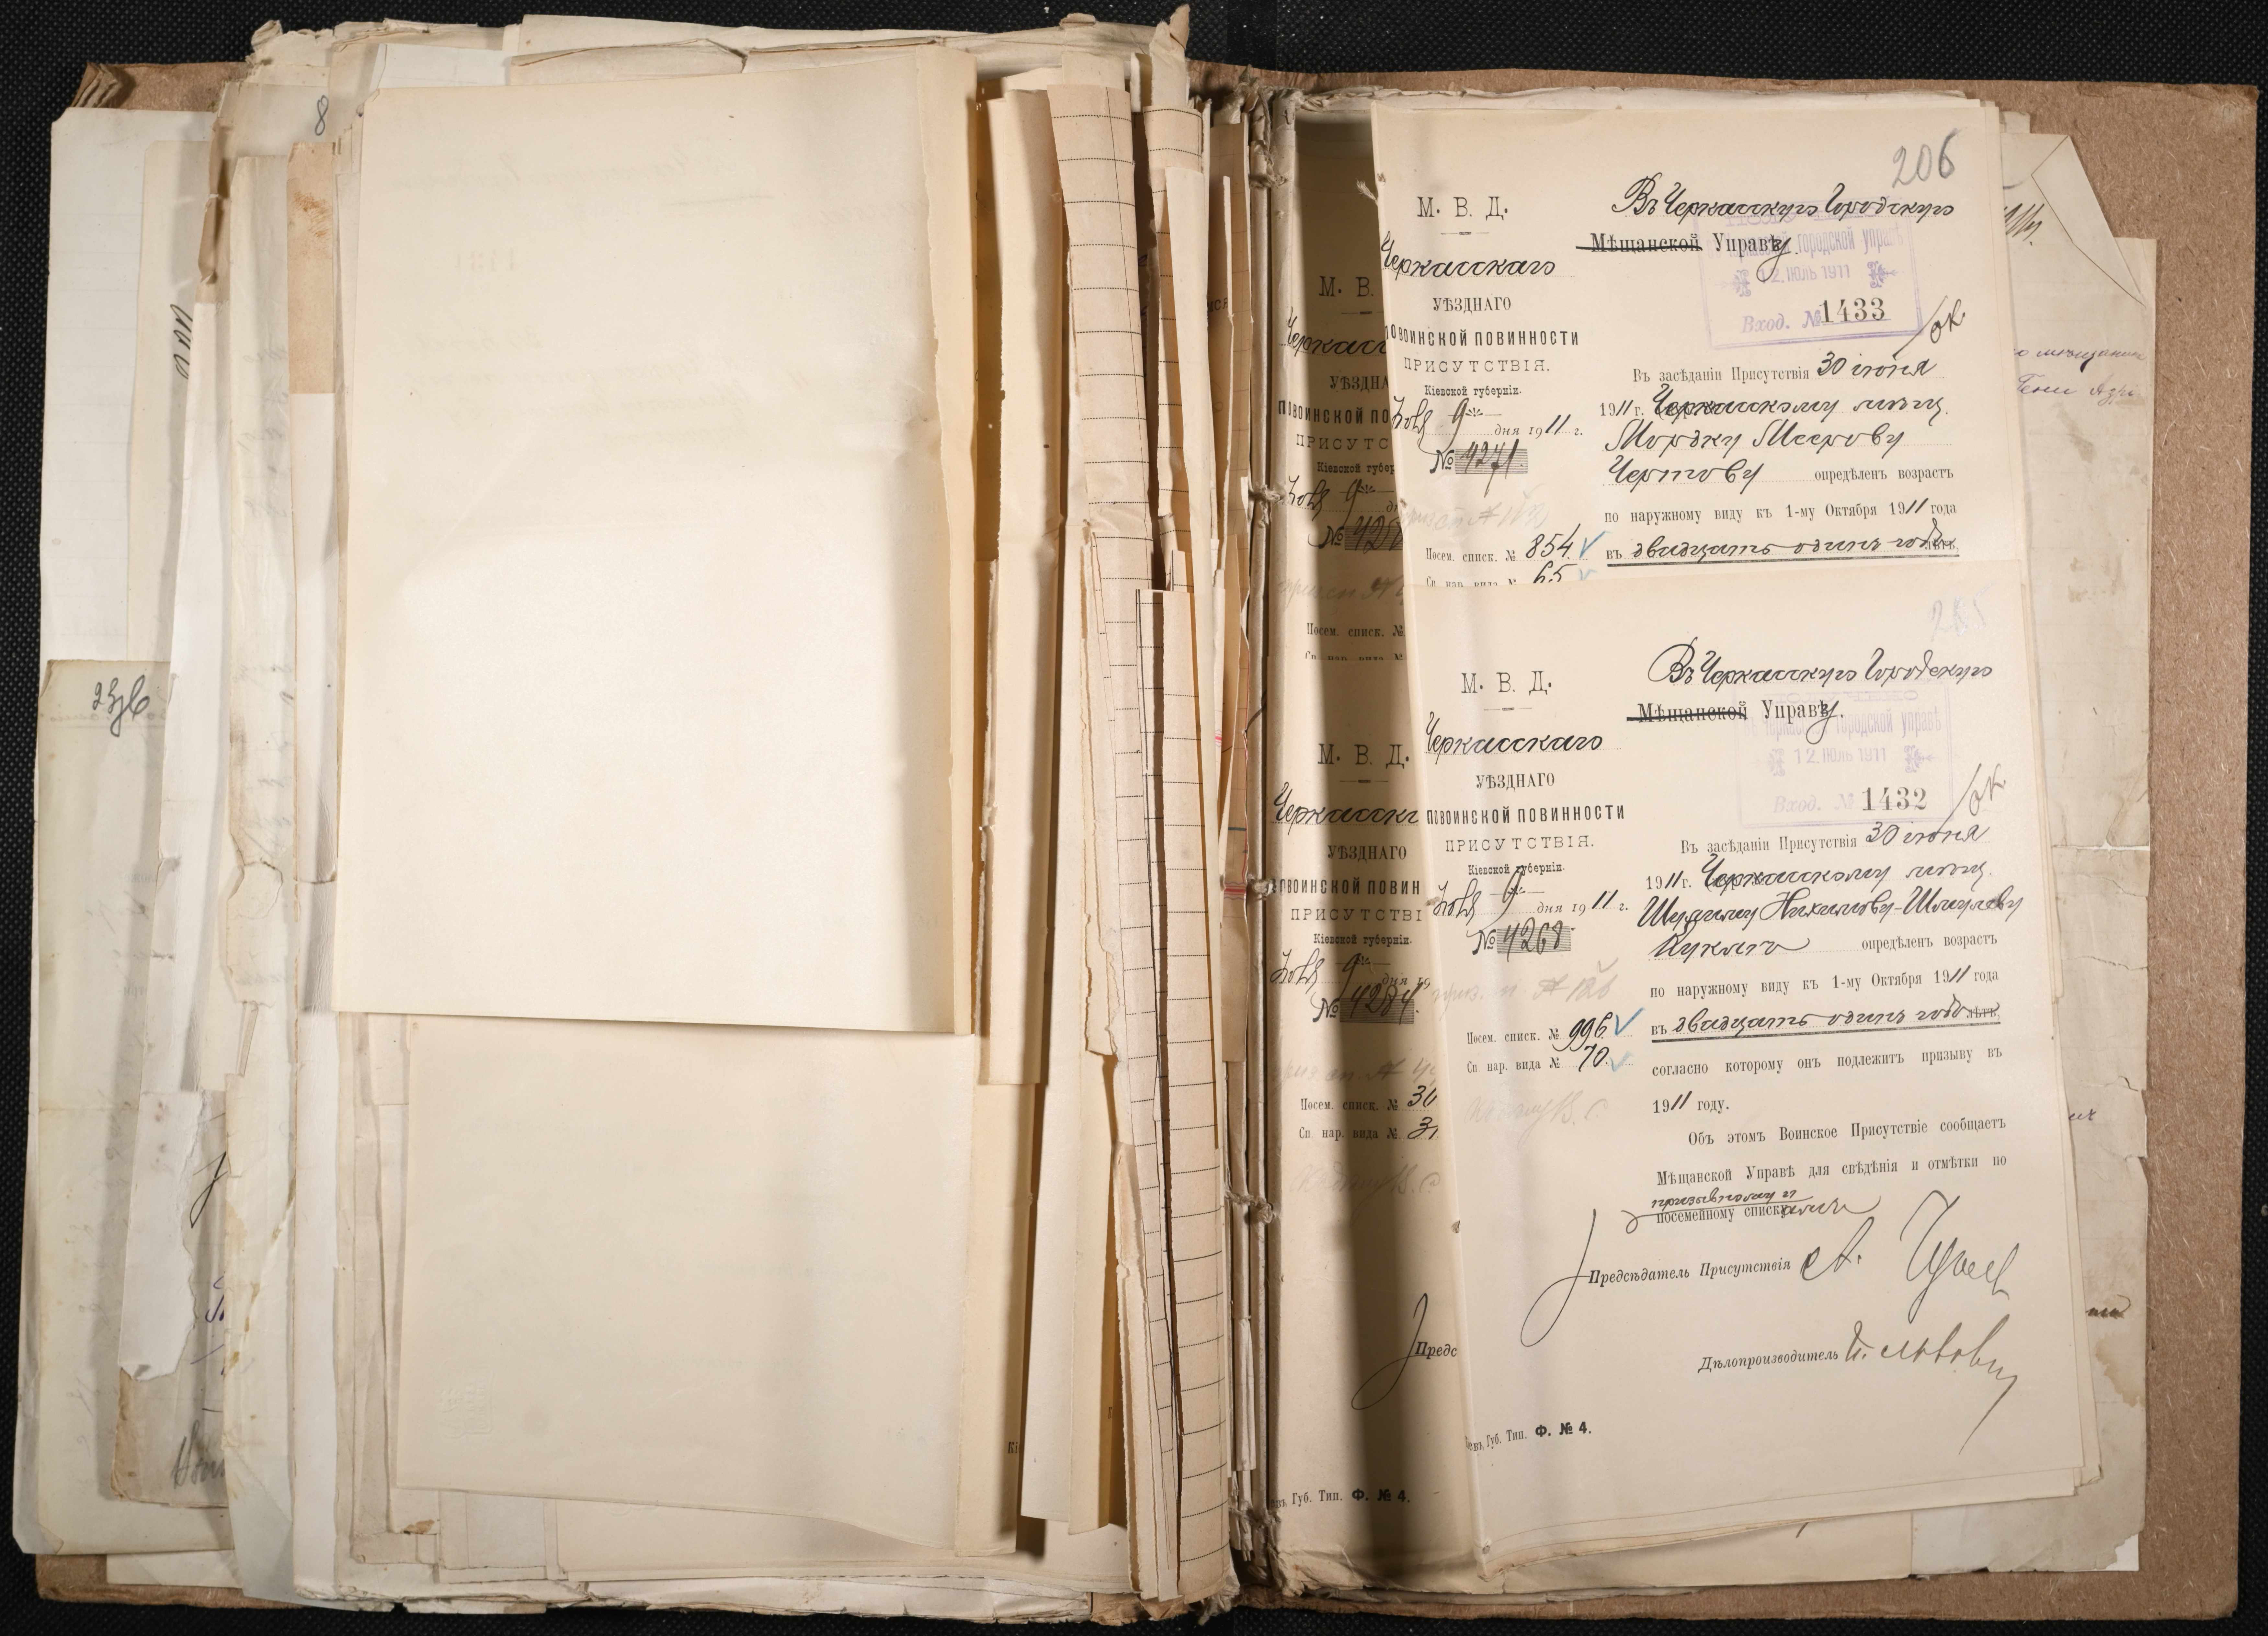 206
М. В. Д.
Черкасскаго
УѢЗДНАГО
ПО ВОИНСКОЙ ПОВИННОСТИ
ПРИСУТСТВІЯ.
Кіевской губерніи.
9 дня 1911 г.
№ 4271.
Посем. списк. № 854.
Сп. нар. вида № 65
Въ Черкасскую Городскую
Мѣщанской Управѣу.
городской управѣ
12. ІЮЛЬ 1911
Вход. № 1433
Въ засѣданіи Присутствія 30 іюня
1911 г. Черкасскому мѣщ.
Мордку Меерову
Чертову опредѣленъ возрастъ
по наружному виду къ 1-му Октября 1911 года
въ двадцать одинъ годъ лѣтъ,
М. В. Д.
Черкасскаго
УѢЗДНАГО
ПО ВОИНСКОЙ ПОВИННОСТИ
ПРИСУТСТВІЯ.
Кіевской губерніи.
9 дня 1911 г.
№ 4268
Посем. списк. № 996.
Сп. нар. вида № 70.
Въ Черкасскую Городскую
Мѣщанской Управѣу.
городской управѣ
12. ІЮЛЬ 1911
Вход. № 1432
Въ засѣданіи Присутствія 30 іюня
1911 г. Черкасскому мѣщ.
Нахимову-Шмулеву
Куклѣ опредѣленъ возрастъ
по наружному виду къ 1-му Октября 1911 года
въ двадцать одинъ годъ лѣтъ,
согласно которому онъ подлежитъ призыву въ
1911 году.
Объ этомъ Воинское Присутствіе сообщаетъ
Мѣщанской Управѣ для свѣдѣнія и отмѣтки по
призывному и
посемейному спискамъ
Предсѣдатель Присутствія А.
Дѣлопроизводитель
Губ. Тип. Ф. № 4.
М. В.
Черкасс
УѢЗДНА
ПО ВОИНСКОЙ ПО
ПРИСУТС
Кіевской губер
9
№ 428
Посем. списк. №
М. В. Д.
Черкасска
УѢЗДНАГО
ПО ВОИНСКОЙ ПОВИН
ПРИСУТСТВІ
Кіевской губерніи.
9 дня 19
№ 4284.
Посем. списк. № 30
Сп. нар. вида № 31
Предс
Губ. Тип. Ф. № 4.
8